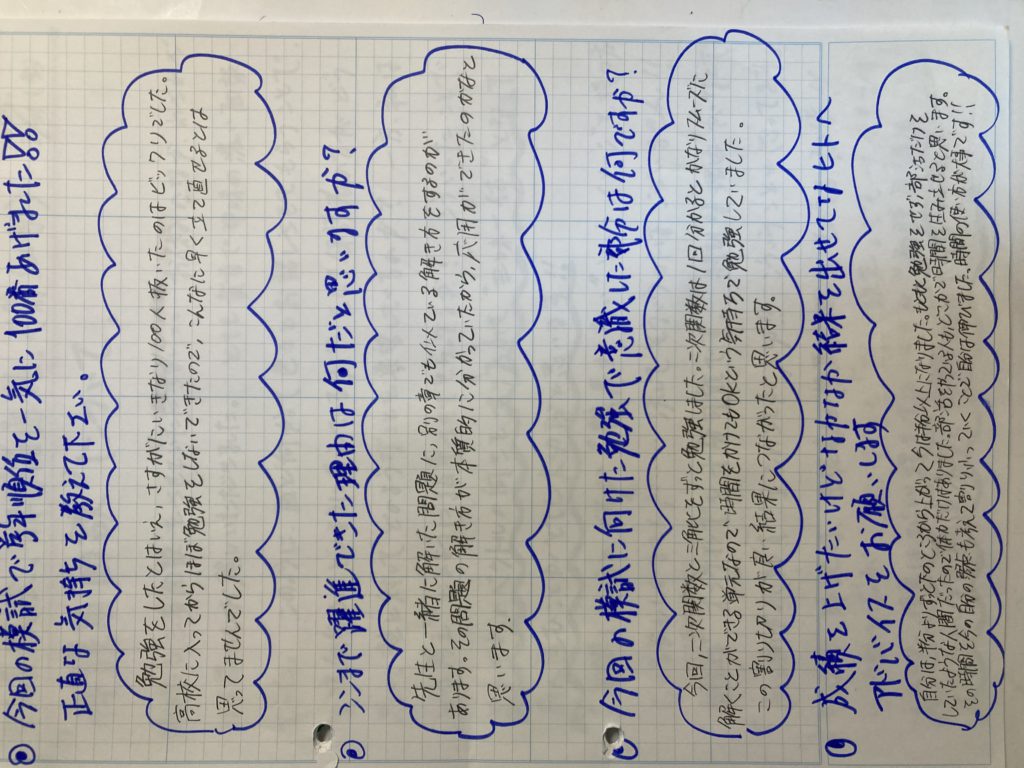 今回の模試で学年順位を一気に100番あげました!!
正直な気持ちを教えて下さい。
勉強をしたとはいえ、さすがにいきなり100人抜いたのはビックリでした。
高校に入ってからほぼ勉強をしないできたので、こんなに早く立て直せるとは
思ってませんでした。
ここまで躍進できた理由は何だと思いますか?
先生と一緒に解いた問題に、別の章でも似ている解き方をするのが
あります。その問題の解き方が本質的に分かっていたから、応用ができたのかなと
思います。
今回の模試に向けた勉強で意識した事は何ですか?
今回、二次関数と三角比をずっと勉強しました。二次関数は1回分かるとかなりスムーズに
解くことができる単元なので時間をかけてもOKという気持ちで勉強していました。
この割り切りが良い結果につながったと思います。
成績を上げたいけどなかなか結果を出せてないヒトへ
アドバイスをお願いします
自分は、指折りずっと下のところから上がって今は
人になりました。もともと勉強をせず、部活だけを
しているような人間だったので
部活をやっている人もどこかで時間を生み出せると思います。
その時間を今の自分の実力も考えて割りふっていくことで自分は伸びました。時間の使い方が大事です!!